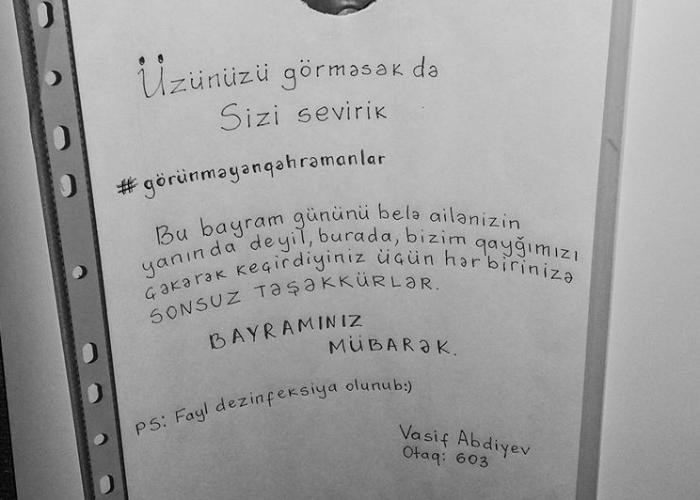 Üzünüzü görməsək də
Sizi sevirik
#görünməyənqəhrəmanlar
Bu bayram gününü belə ailənizin
yanında deyil, burada, bizim qayğımızı
çəkərək keçirdiyiniz üçün hər birinizə
SONSUZ TƏŞƏKKÜRLƏR.
BAYRAMINIZ
MÜBARƏK.
PS: Fayl dezinfeksiya olunub:)
Vasif Abdiyev
Otaq: 603